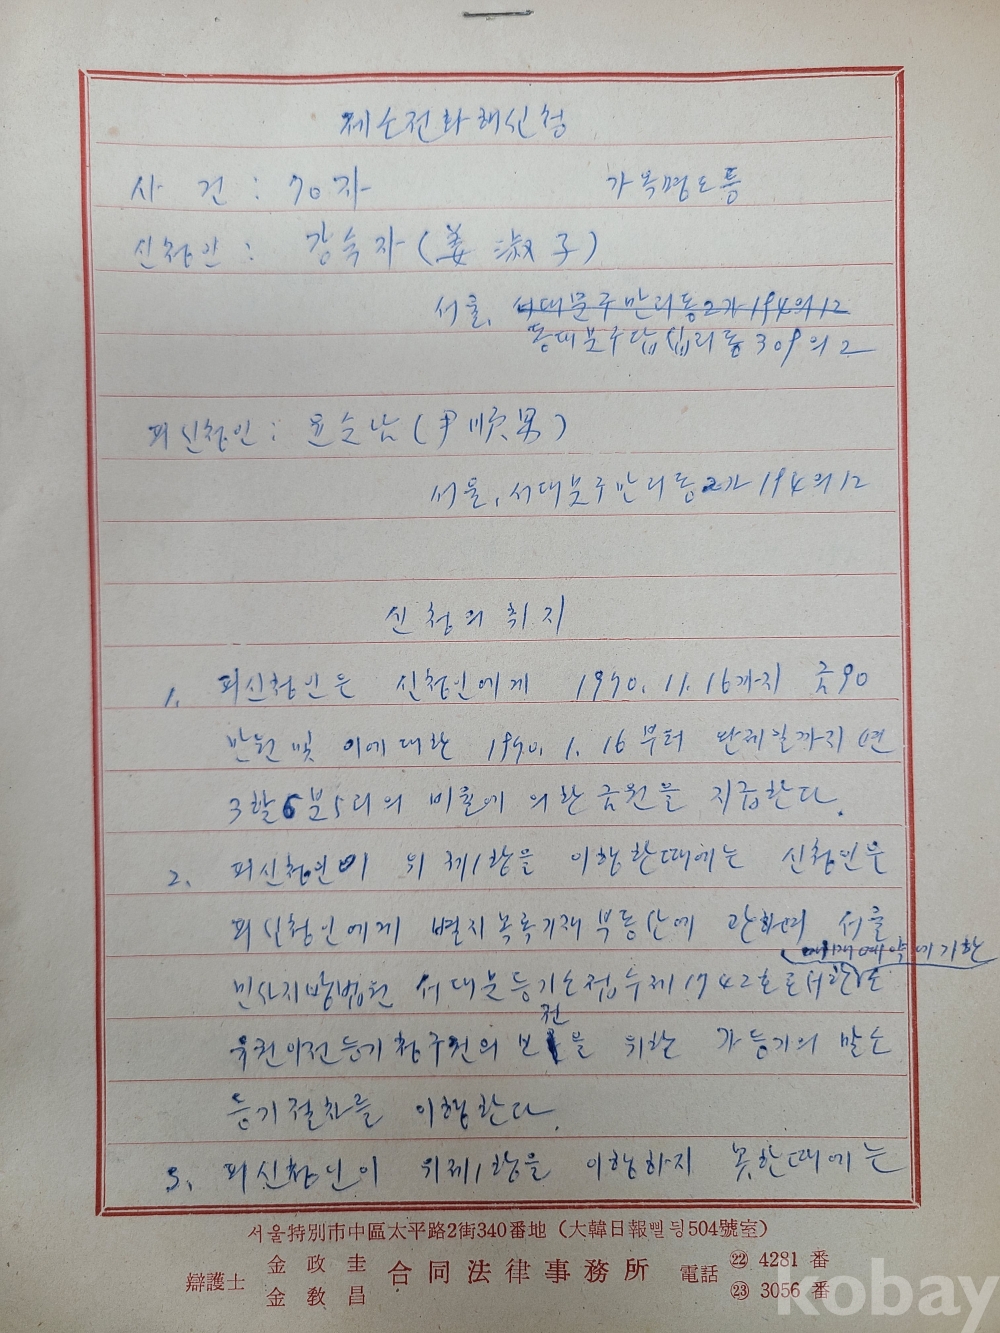 제소전화해신청
사 건 : 70자 가옥명도등
신청인 : 강숙자 (姜淑子)
서울, 서대문구만리동2가 194의12
동대문구답십리동 309의 2
피신청인 : 윤순남 (尹順男)
서울, 서대문구만리동2가 194의12
신청의 취지
1. 피신청인은 신청인에게 1970. 11. 16까지 금90
만원 및 이에 대한 1970. 1. 16부터 완제일까지 연
3할6분5리의 비율에 의한 금원을 지급한다.
2. 피신청인이 위 제1항을 이행한때에는 신청인은
피신청인에게 별지목록기재 부동산에 관하여 서울
매매예약에기한
민사지방법원 서대문등기소접수제1742호로서한 소
유권이전등기청구권의 보전을 위한 가등기의 말소
등기절차를 이행한다.
3. 피신청인이 위제1항을 이행하지 못한때에는
서울特別市中區太平路2街340番地 (大韓日報삘딍504號室)
辯護士 金政圭 金敎昌 合同法律事務所 電話 ㉒ 4281 番 ㉓ 3056 番
kobay